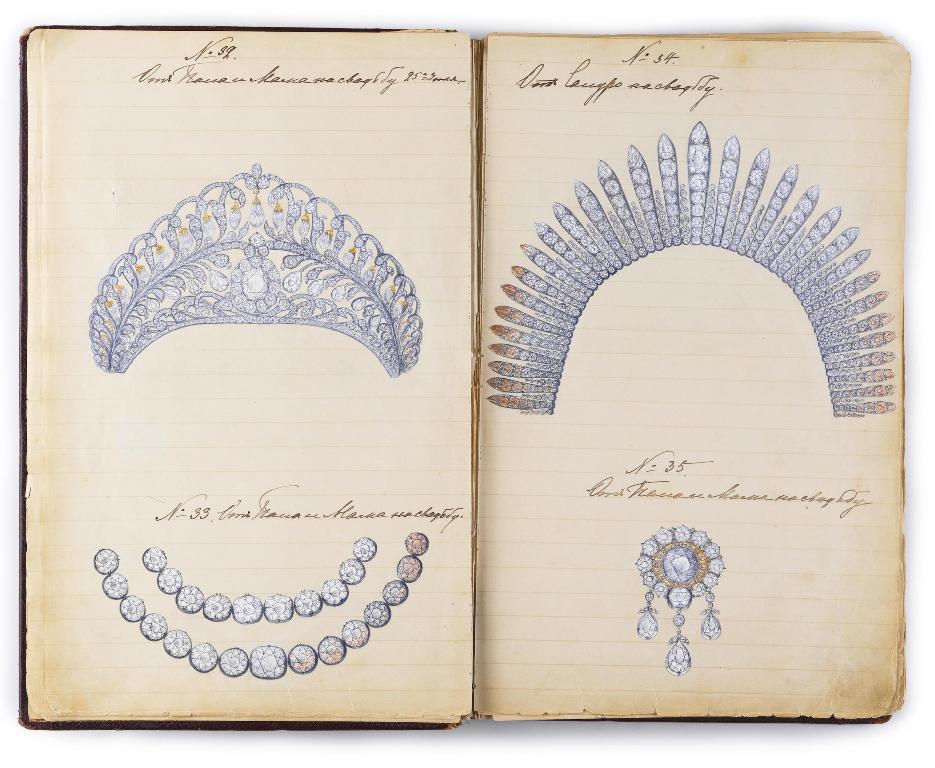 № 32.
Отъ Папа и Мама на свадьбу 25го Iюля
№ 33. Отъ Папа и Мама на свадьбу.
№ 34.
Отъ Сандро на свадьбу.
№ 35.
Отъ Папа и Мама на свадьбу